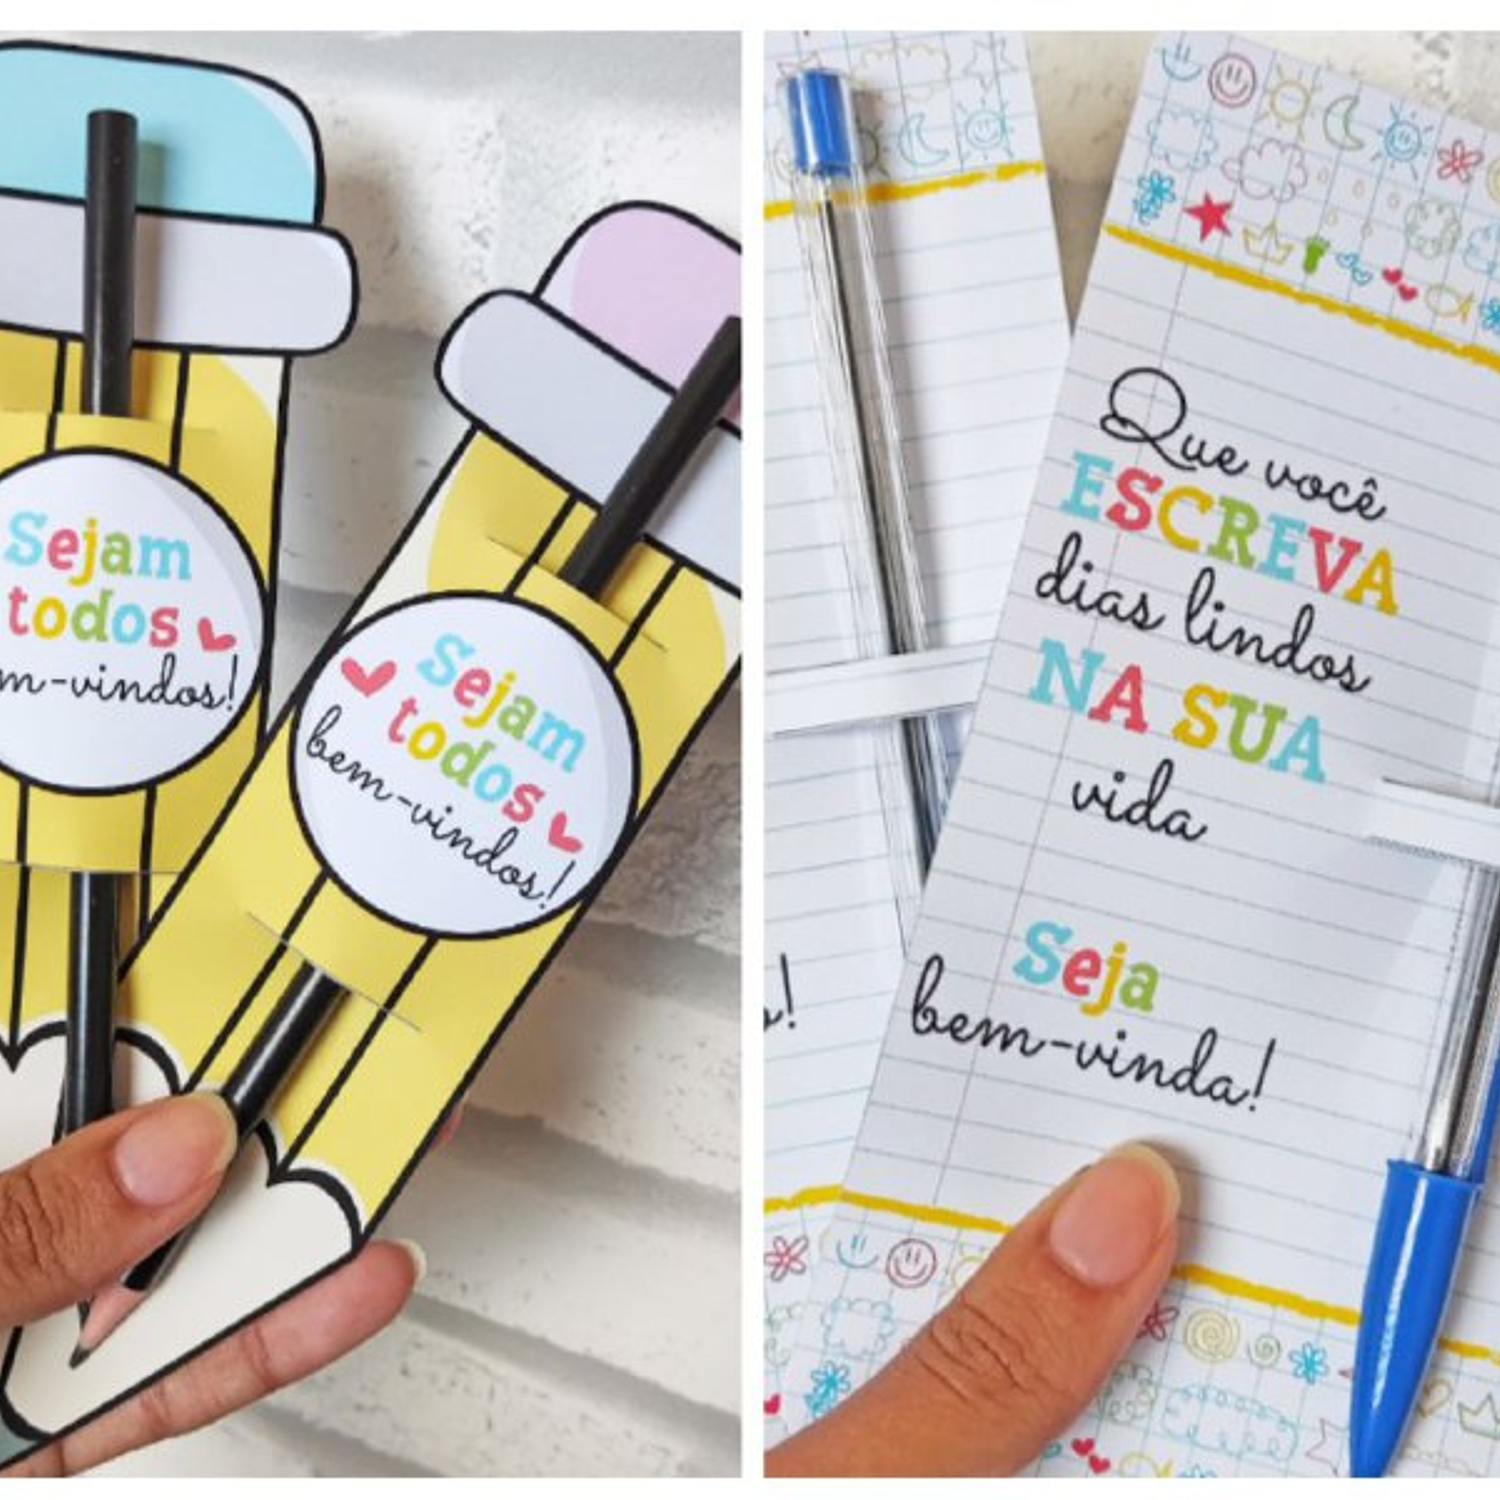 Sejam
todos
m-vindos!
Sejam
todos
bem-vindos!
Que você
ESCREVA
dias lindos
NA SUA
vida
Seja
bem-vinda!